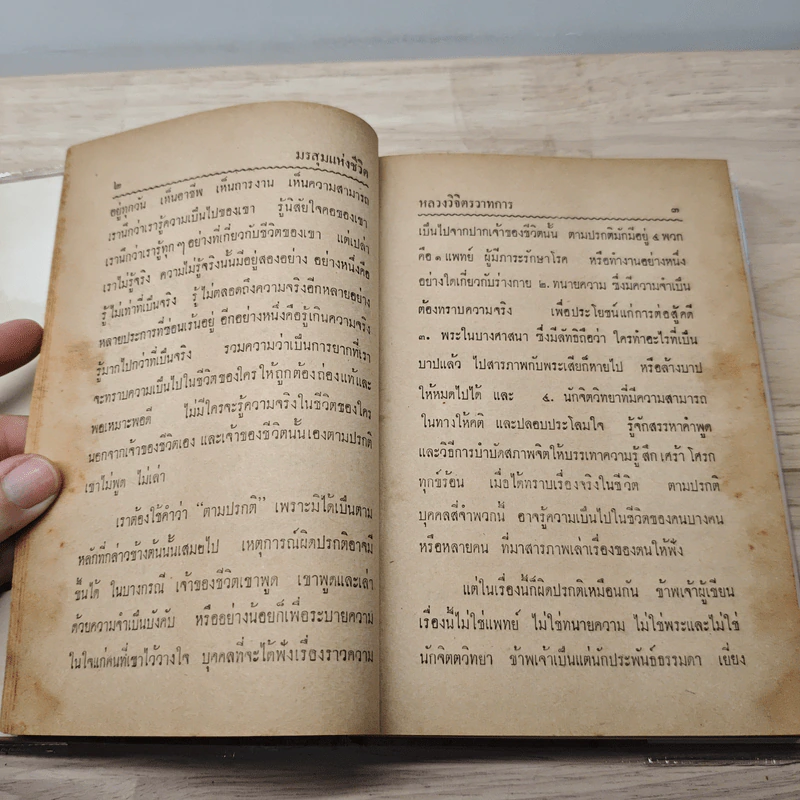 ๒
มรสุมแห่งชีวิต
อยู่ทุกวัน เห็นอาชีพ เห็นการงาน เห็นความสามารถ
เรานึกว่าเรารู้ความเป็นไปของเขา รู้นิสัยใจคอของเขา
เรานึกว่าเรารู้ทุกๆ อย่างที่เกี่ยวกับชีวิตของเขา แต่เปล่า
เราไม่รู้จริง ความไม่รู้จริงนั้นมีอยู่สองอย่าง อย่างหนึ่งคือ
รู้ไม่เท่าที่เป็นจริง รู้ไม่ตลอดถึงความจริงอีกหลายอย่าง
หลายประการที่ซ่อนเร้นอยู่ อีกอย่างหนึ่งคือรู้เกินความจริง
รู้มากไปกว่าที่เป็นจริง รวมความว่าเป็นการยากที่เรา
จะทราบความเป็นไปในชีวิตของใครให้ถูกต้องถ่องแท้และ
พอเหมาะพอดี ไม่มีใครจะรู้ความจริงในชีวิตของใคร
นอกจากเจ้าของชีวิตเอง และเจ้าของชีวิตนั้นเองตามปรกติ
เขาไม่พูด ไม่เล่า
เราต้องใช้คำว่า “ตามปรกติ” เพราะมิได้เป็นตาม
หลักที่กล่าวข้างต้นนั้นเสมอไป เหตุการณ์ผิดปรกติอาจมี
ขึ้นได้ ในบางกรณี เจ้าของชีวิตเขาพูด เขาพูดและเล่า
ด้วยความจำเป็นบังคับ หรืออย่างน้อยก็เพื่อระบายความ
ในใจแก่คนที่เขาไว้วางใจ บุคคลที่จะได้ฟังเรื่องราวความ
หลวงวิจิตรวาทการ
๓
เป็นไปจากปากเจ้าของชีวิตนั้น ตามปรกติมักมีอยู่ ๔ พวก
คือ ๑ แพทย์ ผู้มีภาระรักษาโรค หรือทำงานอย่างหนึ่ง
อย่างใดเกี่ยวกับร่างกาย ๒. ทนายความ ซึ่งมีความจำเป็น
ต้องทราบความจริง เพื่อประโยชน์แก่การต่อสู้คดี
๓. พระในบางศาสนา ซึ่งมีลัทธิถือว่า ใครทำอะไรที่เป็น
บาปแล้ว ไปสารภาพกับพระเสียก็หายไป หรือล้างบาป
ให้หมดไปได้ และ ๔. นักจิตวิทยาที่มีความสามารถ
ในทางให้คติ และปลอบประโลมใจ รู้จักสรรหาคำพูด
และวิธีการบำบัดสภาพจิตให้บรรเทาความรู้สึก เศร้า โศรก
ทุกข์ร้อน เมื่อได้ทราบเรื่องจริงในชีวิต ตามปรกติ
บุคคลสี่จำพวกนี้ อาจรู้ความเป็นไปในชีวิตของคนบางคน
หรือหลายคน ที่มาสารภาพเล่าเรื่องของตนให้ฟัง
แต่ในเรื่องนี้ก็ผิดปรกติเหมือนกัน ข้าพเจ้าผู้เขียน
เรื่องนี้ไม่ใช่แพทย์ ไม่ใช่ทนายความ ไม่ใช่พระและไม่ใช่
นักจิตตวิทยา ข้าพเจ้าเป็นแต่นักประพันธ์ธรรมดา เยี่ยง